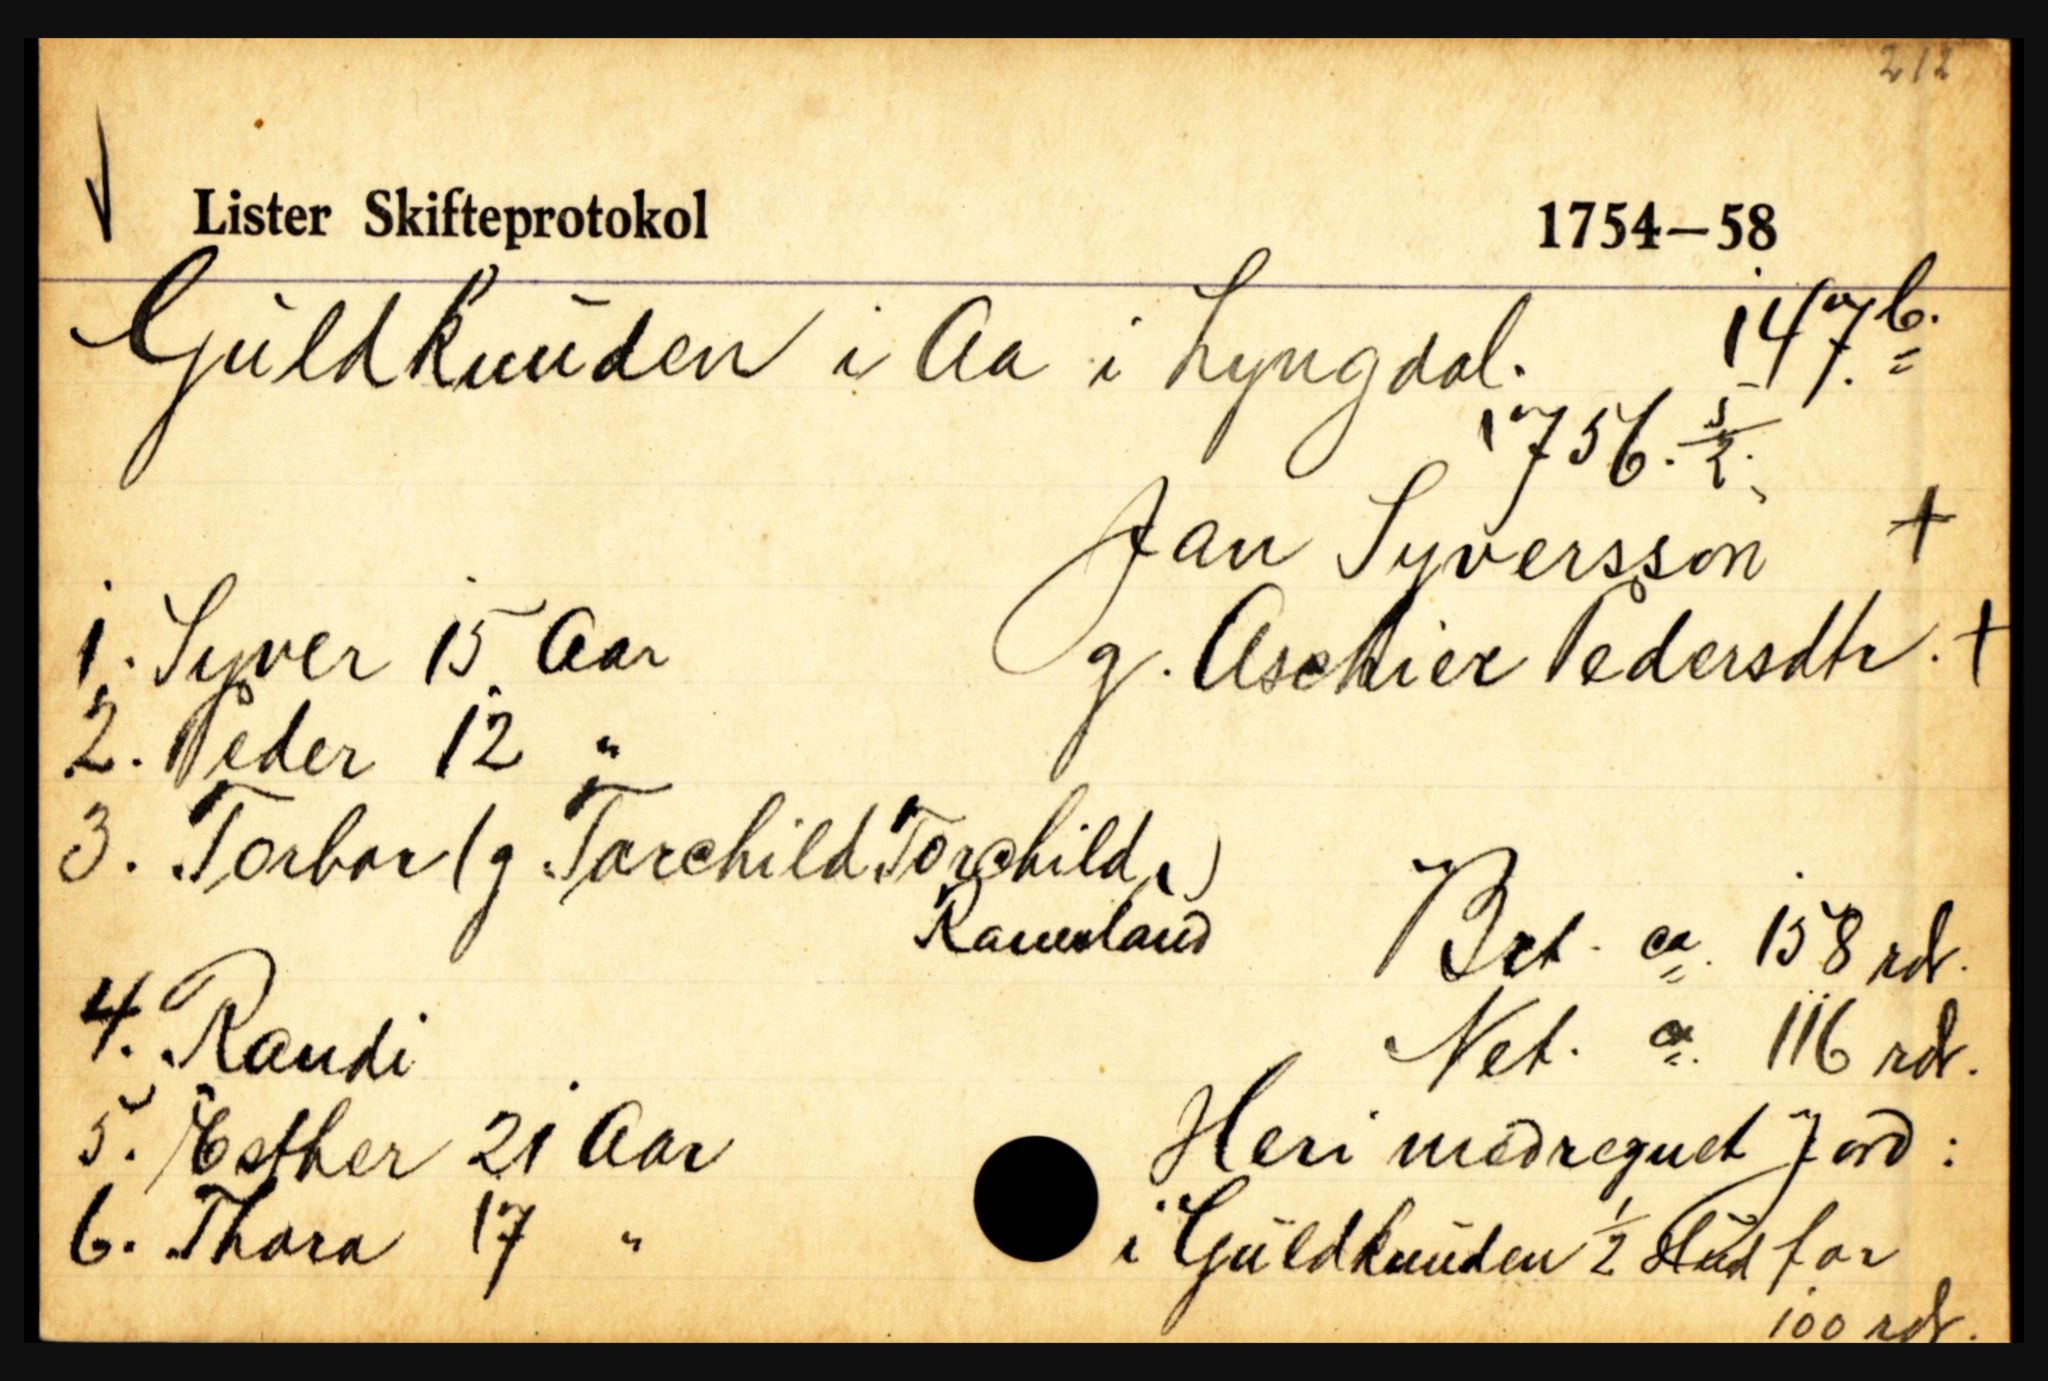 212
Lister Skifteprotokol 1754–58
Guldknuden i Aa i Lyngdal. 147 b.
1756. 5/2.
Jan Syversson +
1. Syver 15 Aar g. Aschier Pedersdtr. +
2. Peder 12 "
3. Torbor (g. Torchild Torchilds.)
4. Randi
Brt. ca. 158 rdr.
Net. ca. 116 rdr.
5. Esther 21 Aar Heri medregnet Jord:
6. Thora 17 " i Guldknuden 1/2 Hud for
100 rdr.